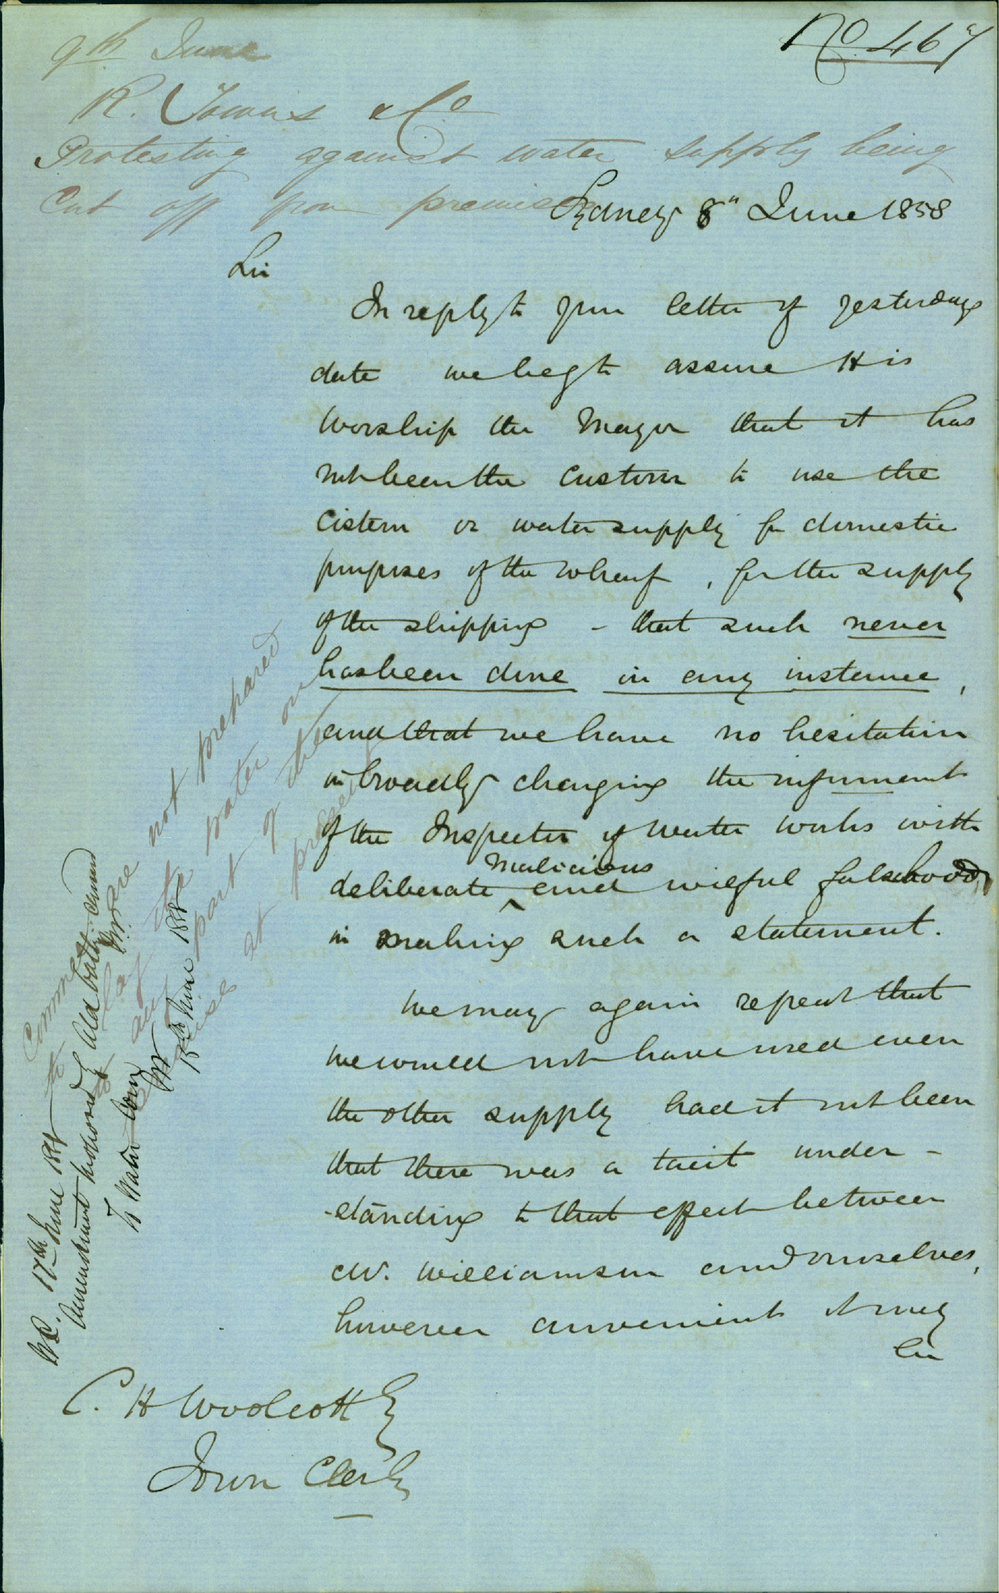 No. 467
9th June
R. Towns & Co
Protesting against water supply being
Cut off from premises
Sydney 8th June 1858
Sir
In reply to your letter of yesterdays
date we beg to assure His
Worship the Mayor that it has
not been the custom to use the
Cistern or water supply for domestic
purposes of the Wharf, for the supply
of the shipping - that such never
has been done in any instance,
and that we have no hesitation
in broadly charging the informant
of the Inspector of Water Works with
deliberate malicious and wilful falsehood,
in making such a statement.
We may again repeat that
we would not have used even
the other supply had it not been
that there was a tacit under-
-standing to that effect between
Mr. Williamson and ourselves,
however convenient it may
be
C. H Woolcott Esq
Town Clerk
not prepared
to lay the water on
to any part of the
at present
WC. 17th June 188
Amendment moved by Ald
To Water Com
15th June 188